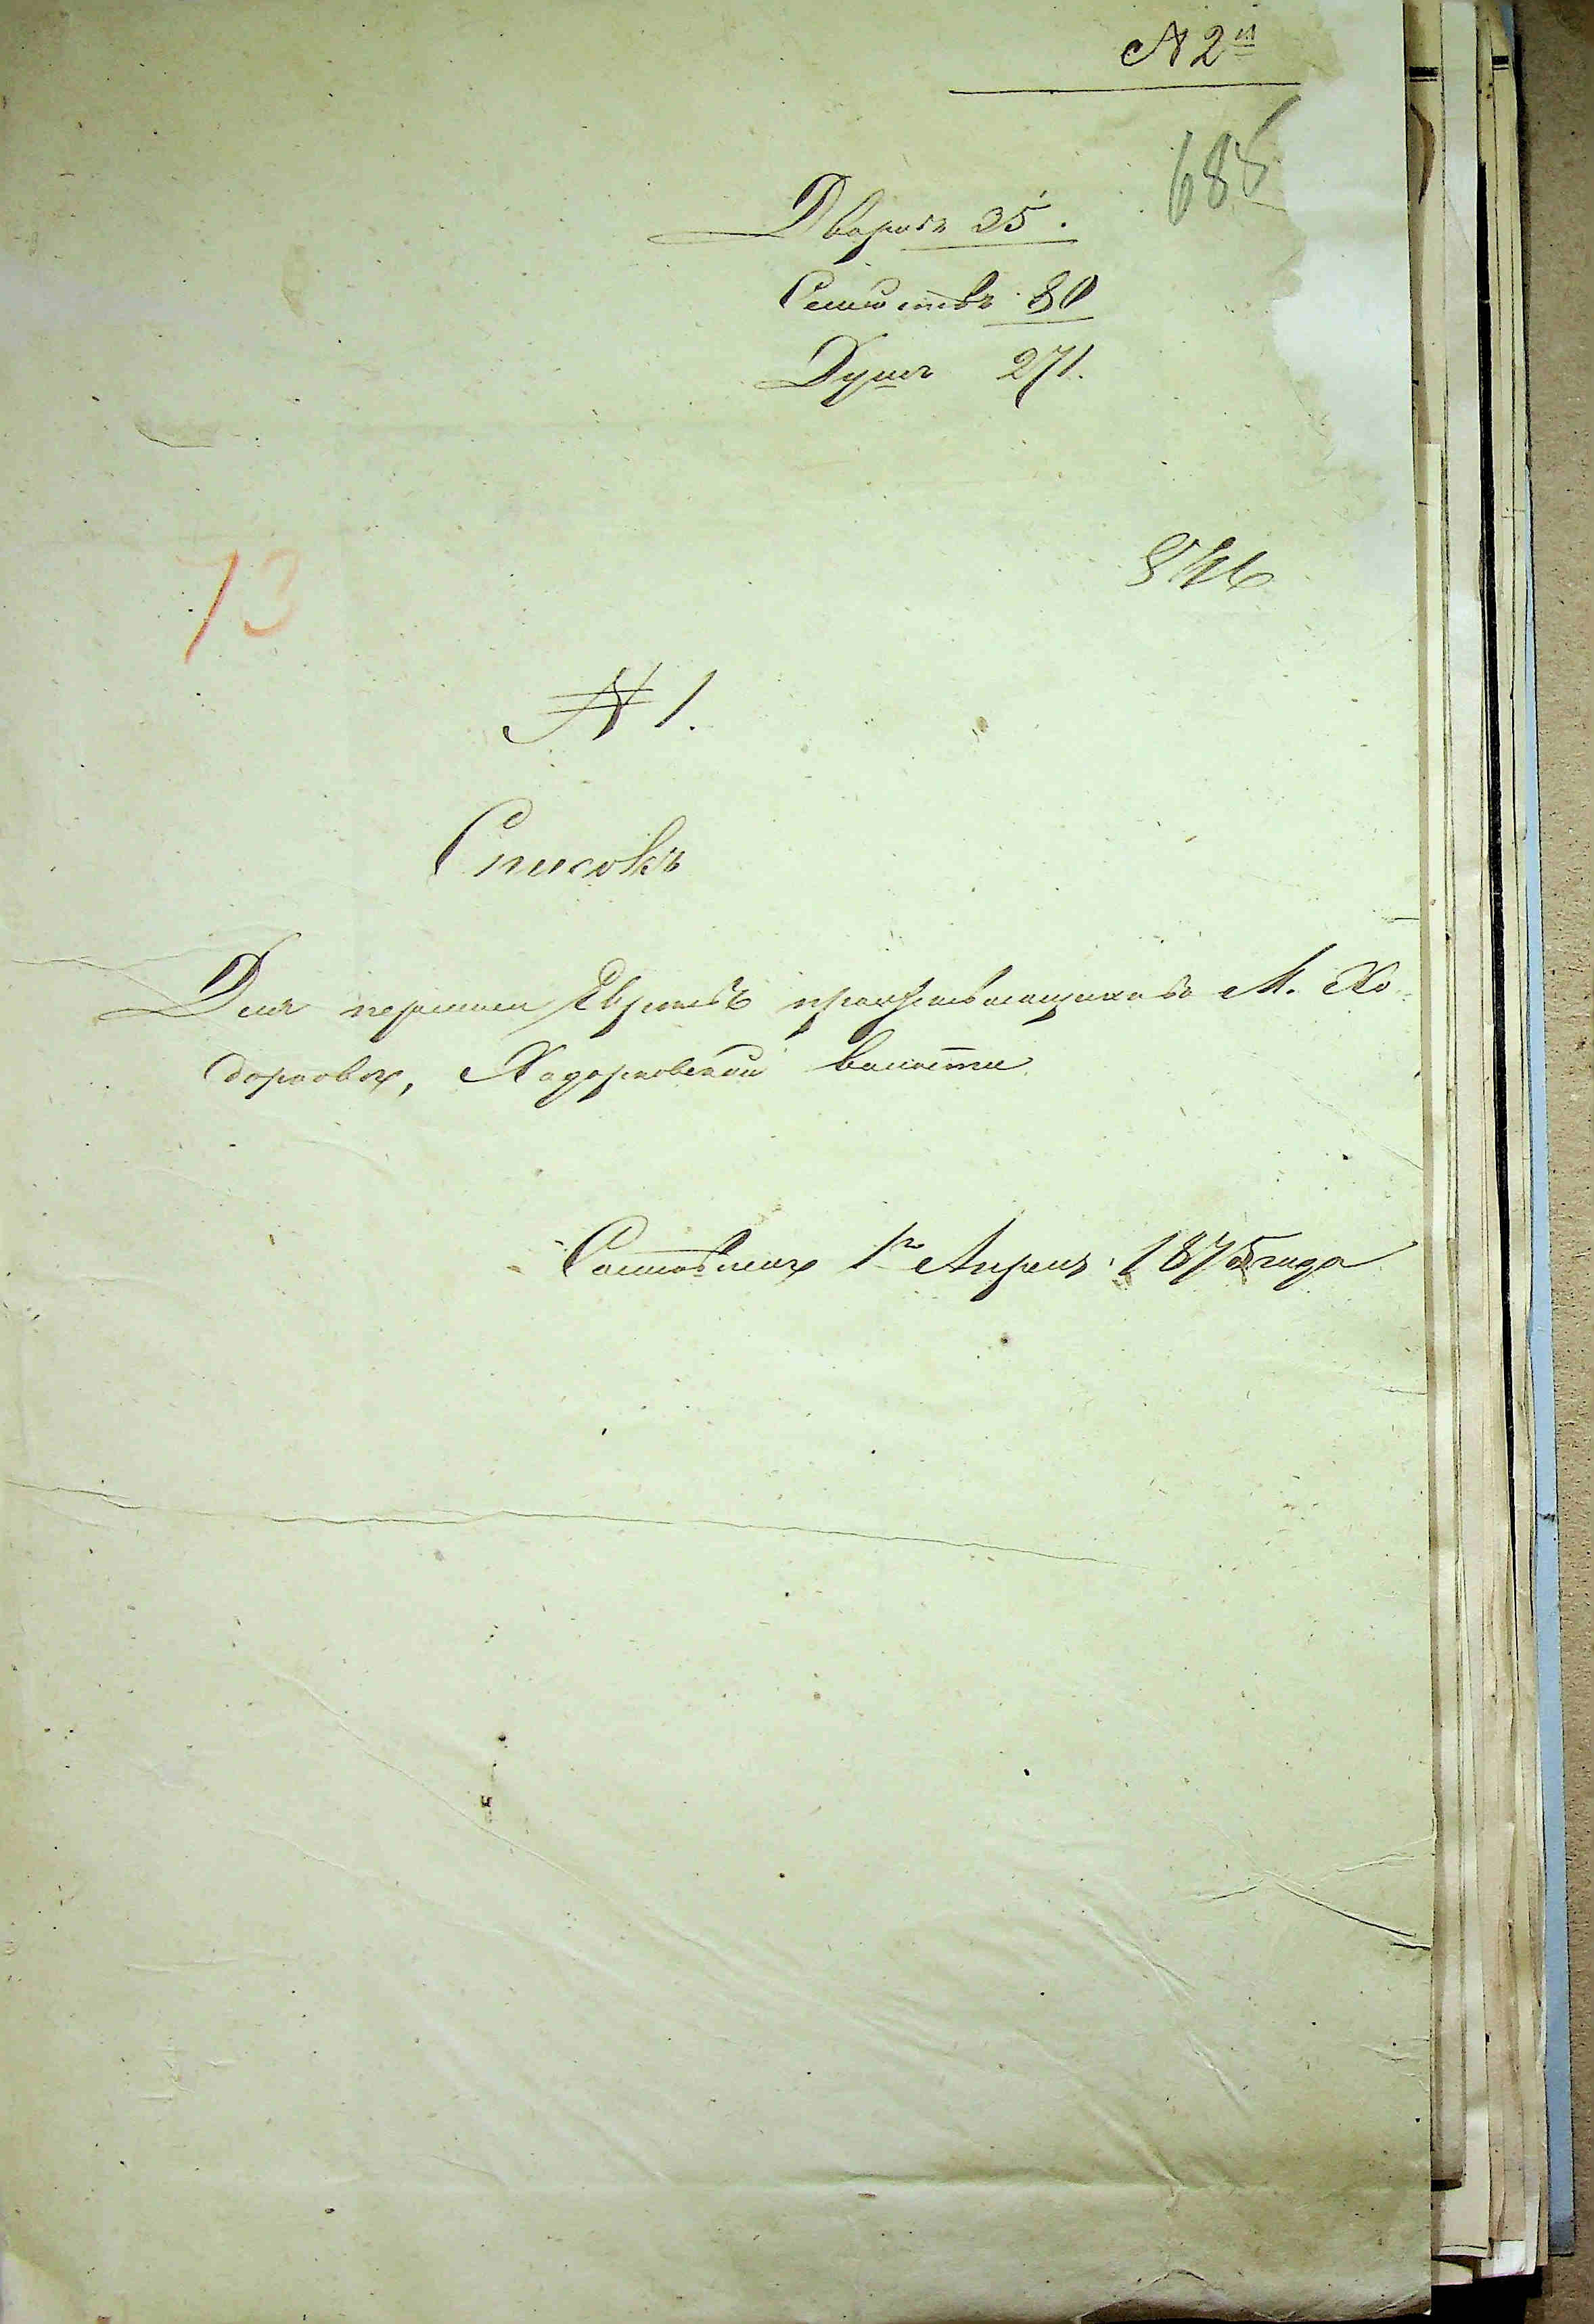 № 2й
685
Дворовъ 35.
Семействъ 80
Душъ 271.
73
№ 1.
Списокъ
Для переписи Евреевъ проживающихъ въ М. Хо-
дорковѣ, Ходорковской волости
Составленъ 1го Апрѣля 1875 года